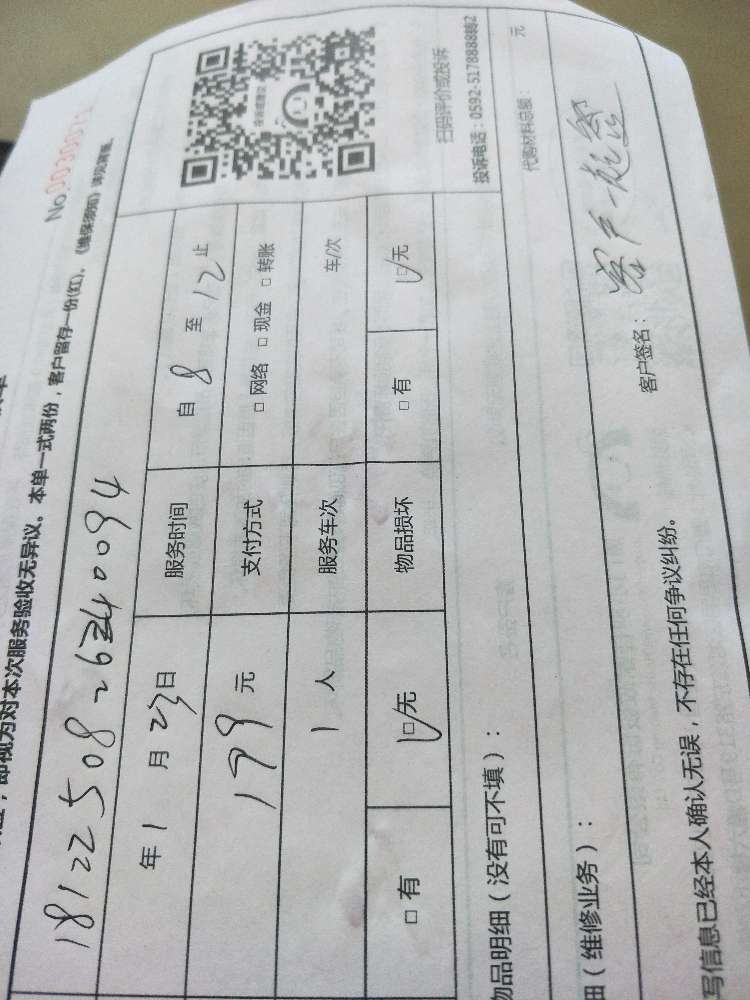 No.00300071
即视为对本次服务验收无异议。本单一式两份，客户留存一份(红)。《维保须知》详见背面。
181225082624400094
年 1 月 23 日 服务时间 自 8 至 12 止
179 元 支付方式 □ 网络 □ 现金 □ 转账
1 人 服务车次 车/次
□ 有 □ 无 物品损坏 □ 有 □ 无
扫码评价或投诉
投诉电话：0592-5178888转2
物品明细（没有可不填）：
代购材料总额： 元
（维修业务）：
写信息已经本人确认无误，不存在任何争议纠纷。 客户签名：